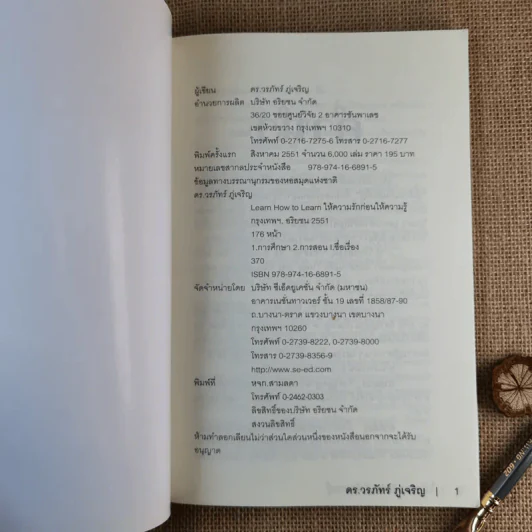 ผู้เขียน ดร.วรภัทร์ ภู่เจริญ
อำนวยการผลิต บริษัท อริยชน จำกัด
36/20 ซอยศูนย์วิจัย 2 อาคารชันพาเลซ
เขตห้วยขวาง กรุงเทพฯ 10310
โทรศัพท์ 0-2716-7275-6 โทรสาร 0-2716-7277
พิมพ์ครั้งแรก สิงหาคม 2551 จำนวน 6,000 เล่ม ราคา 195 บาท
หมายเลขสากลประจำหนังสือ 978-974-16-6891-5
ข้อมูลทางบรรณานุกรมของหอสมุดแห่งชาติ
ดร.วรภัทร์ ภู่เจริญ
Learn How to Learn ให้ความรักก่อนให้ความรู้
กรุงเทพฯ. อริยชน 2551
176 หน้า
1.การศึกษา 2.การสอน I.ชื่อเรื่อง
370
ISBN 978-974-16-6891-5
จัดจำหน่ายโดย บริษัท ซีเอ็ดยูเคชั่น จำกัด (มหาชน)
อาคารเนชั่นทาวเวอร์ ชั้น 19 เลขที่ 1858/87-90
ถ.บางนา-ตราด แขวงบางนา เขตบางนา
กรุงเทพฯ 10260
โทรศัพท์ 0-2739-8222, 0-2739-8000
โทรสาร 0-2739-8356-9
http://www.se-ed.com
พิมพ์ที่ หจก.สามลดา
โทรศัพท์ 0-2462-0303
ลิขสิทธิ์ของบริษัท อริยชน จำกัด
สงวนลิขสิทธิ์
ห้ามทำลอกเลียนไม่ว่าส่วนใดส่วนหนึ่งของหนังสือนอกจากจะได้รับ
อนุญาต
ดร.วรภัทร์ ภู่เจริญ | 1